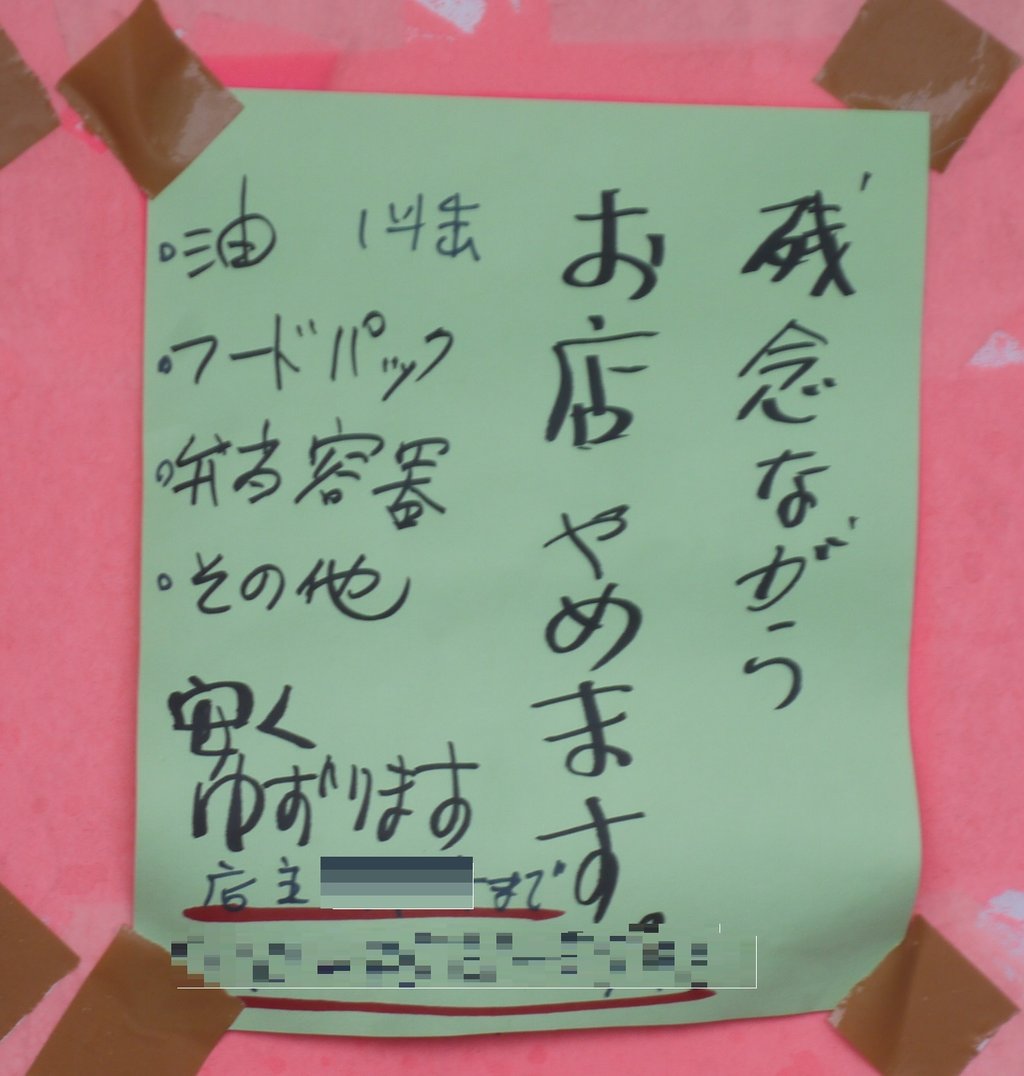 残念ながら
お店やめます。
・油 1斗缶
・フードパック
・弁当容器
・その他
安く
ゆずります
店主 まで